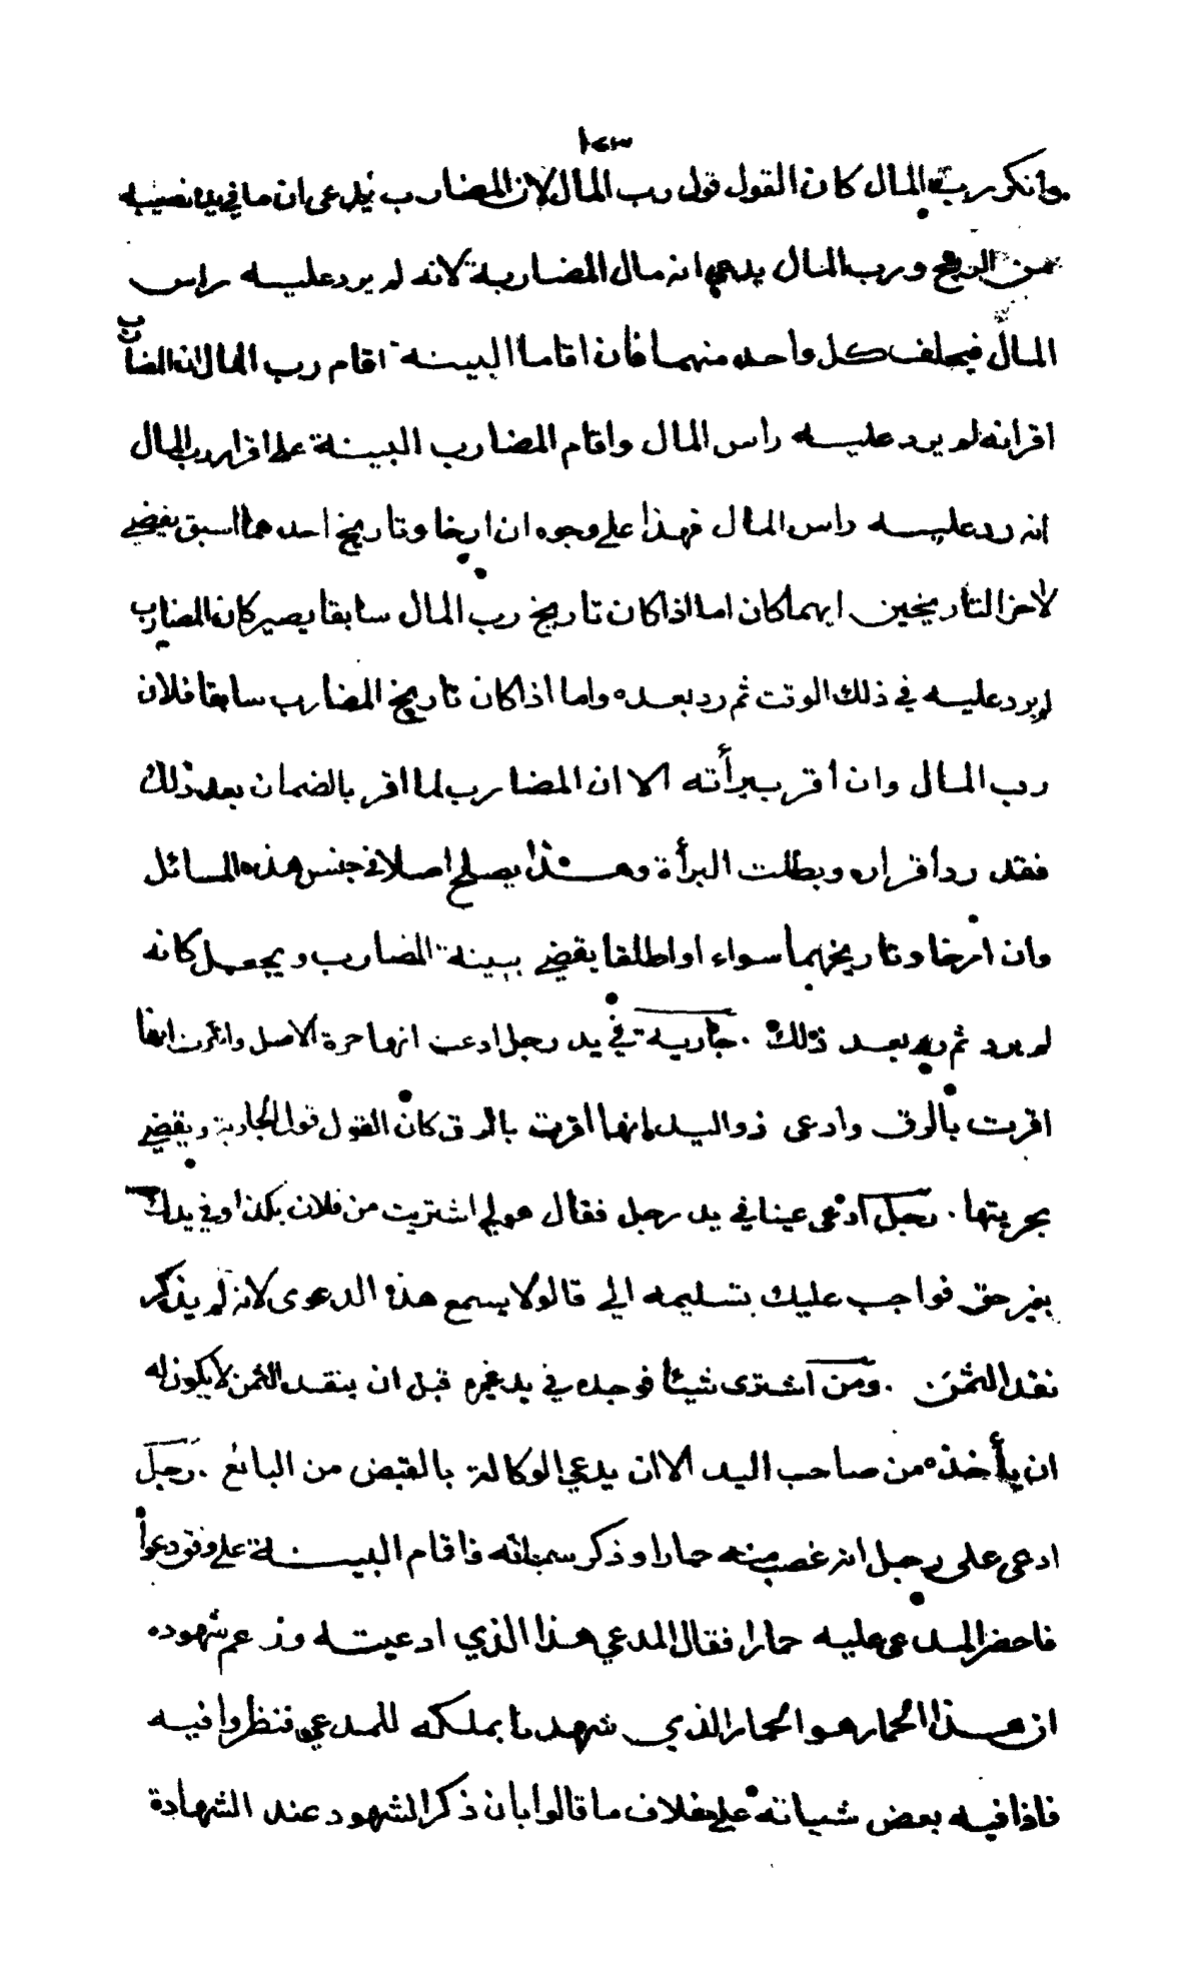 ١٤٣
وانكر رب المال كان القول قول رب المال لان المضارب يدعي ان ما في يده نصيبه
من الربح ورب المال يدعي انه مال المضاربة لانه لم يرد عليه راس
المال فيحلف كل واحد منهما فأن اقاما البينة اقام رب المال ان المضارب
اقر انه لم يرد عليه راس المال واقام المضارب البينة على اقرار رب المال
انه رد عليه راس المال فهذا على وجوه ان ارخا وتاريخ احدهما اسبق يقضي
لأخر التأريخين ايهما كان اما اذا كان تاريخ رب المال سابقا يصير كان المضارب
لم يرد عليه في ذلك الوقت ثم رد بعده واما اذا كان تاريخ المضارب سابقا فلان
رب المال وان أقر ببرأته الا ان المضارب لما اقر بالضمان بعد ذلك
فقد رد أقراره وبطلت البرأة وهذا يصلح اصلا في جنس هذه المسائل
وان ارخا وتاريخهما سواء او اطلقا يقضي ببينة المضارب ويجعل كانه
لم يرد ثم رد بعد ذلك . جارية في يد رجل ادعت انها حرة الاصل وانكرت انها
اقرت بالرق وادعى ذو اليد انها اقرت بالرق كان القول قول الجارية ويقضي
بحريتها . رجل ادعى عينا في يد رجل فقال هو لي اشتريت من فلان بكذا وفي يدك
بغير حق فواجب عليك بتسليمه الي قالوا لا يسمع هذه الدعوى لانه لم يذكر
نقد الثمن . ومن اشترى شيئا فوجده في يد غيره قبل ان ينقد الثمن لا يكون له
ان يأخذه من صاحب اليد الا ان يدعي الوكالة بالقبض من البائع . رجل
ادعى على رجل انه غصب منه حمارا وذكر سماته فاقام البينة على وفق دعواه
فاحضر المدعى عليه حمارا فقال المدعي هذا الذي ادعيته وزعم شهوده
ان هذا الحمار هو الحمار الذي شهدنا بملكه للمدعي فنظروا فيه
فاذا فيه بعض شياته على خلاف ما قالوا بان ذكر الشهود عند الشهادة